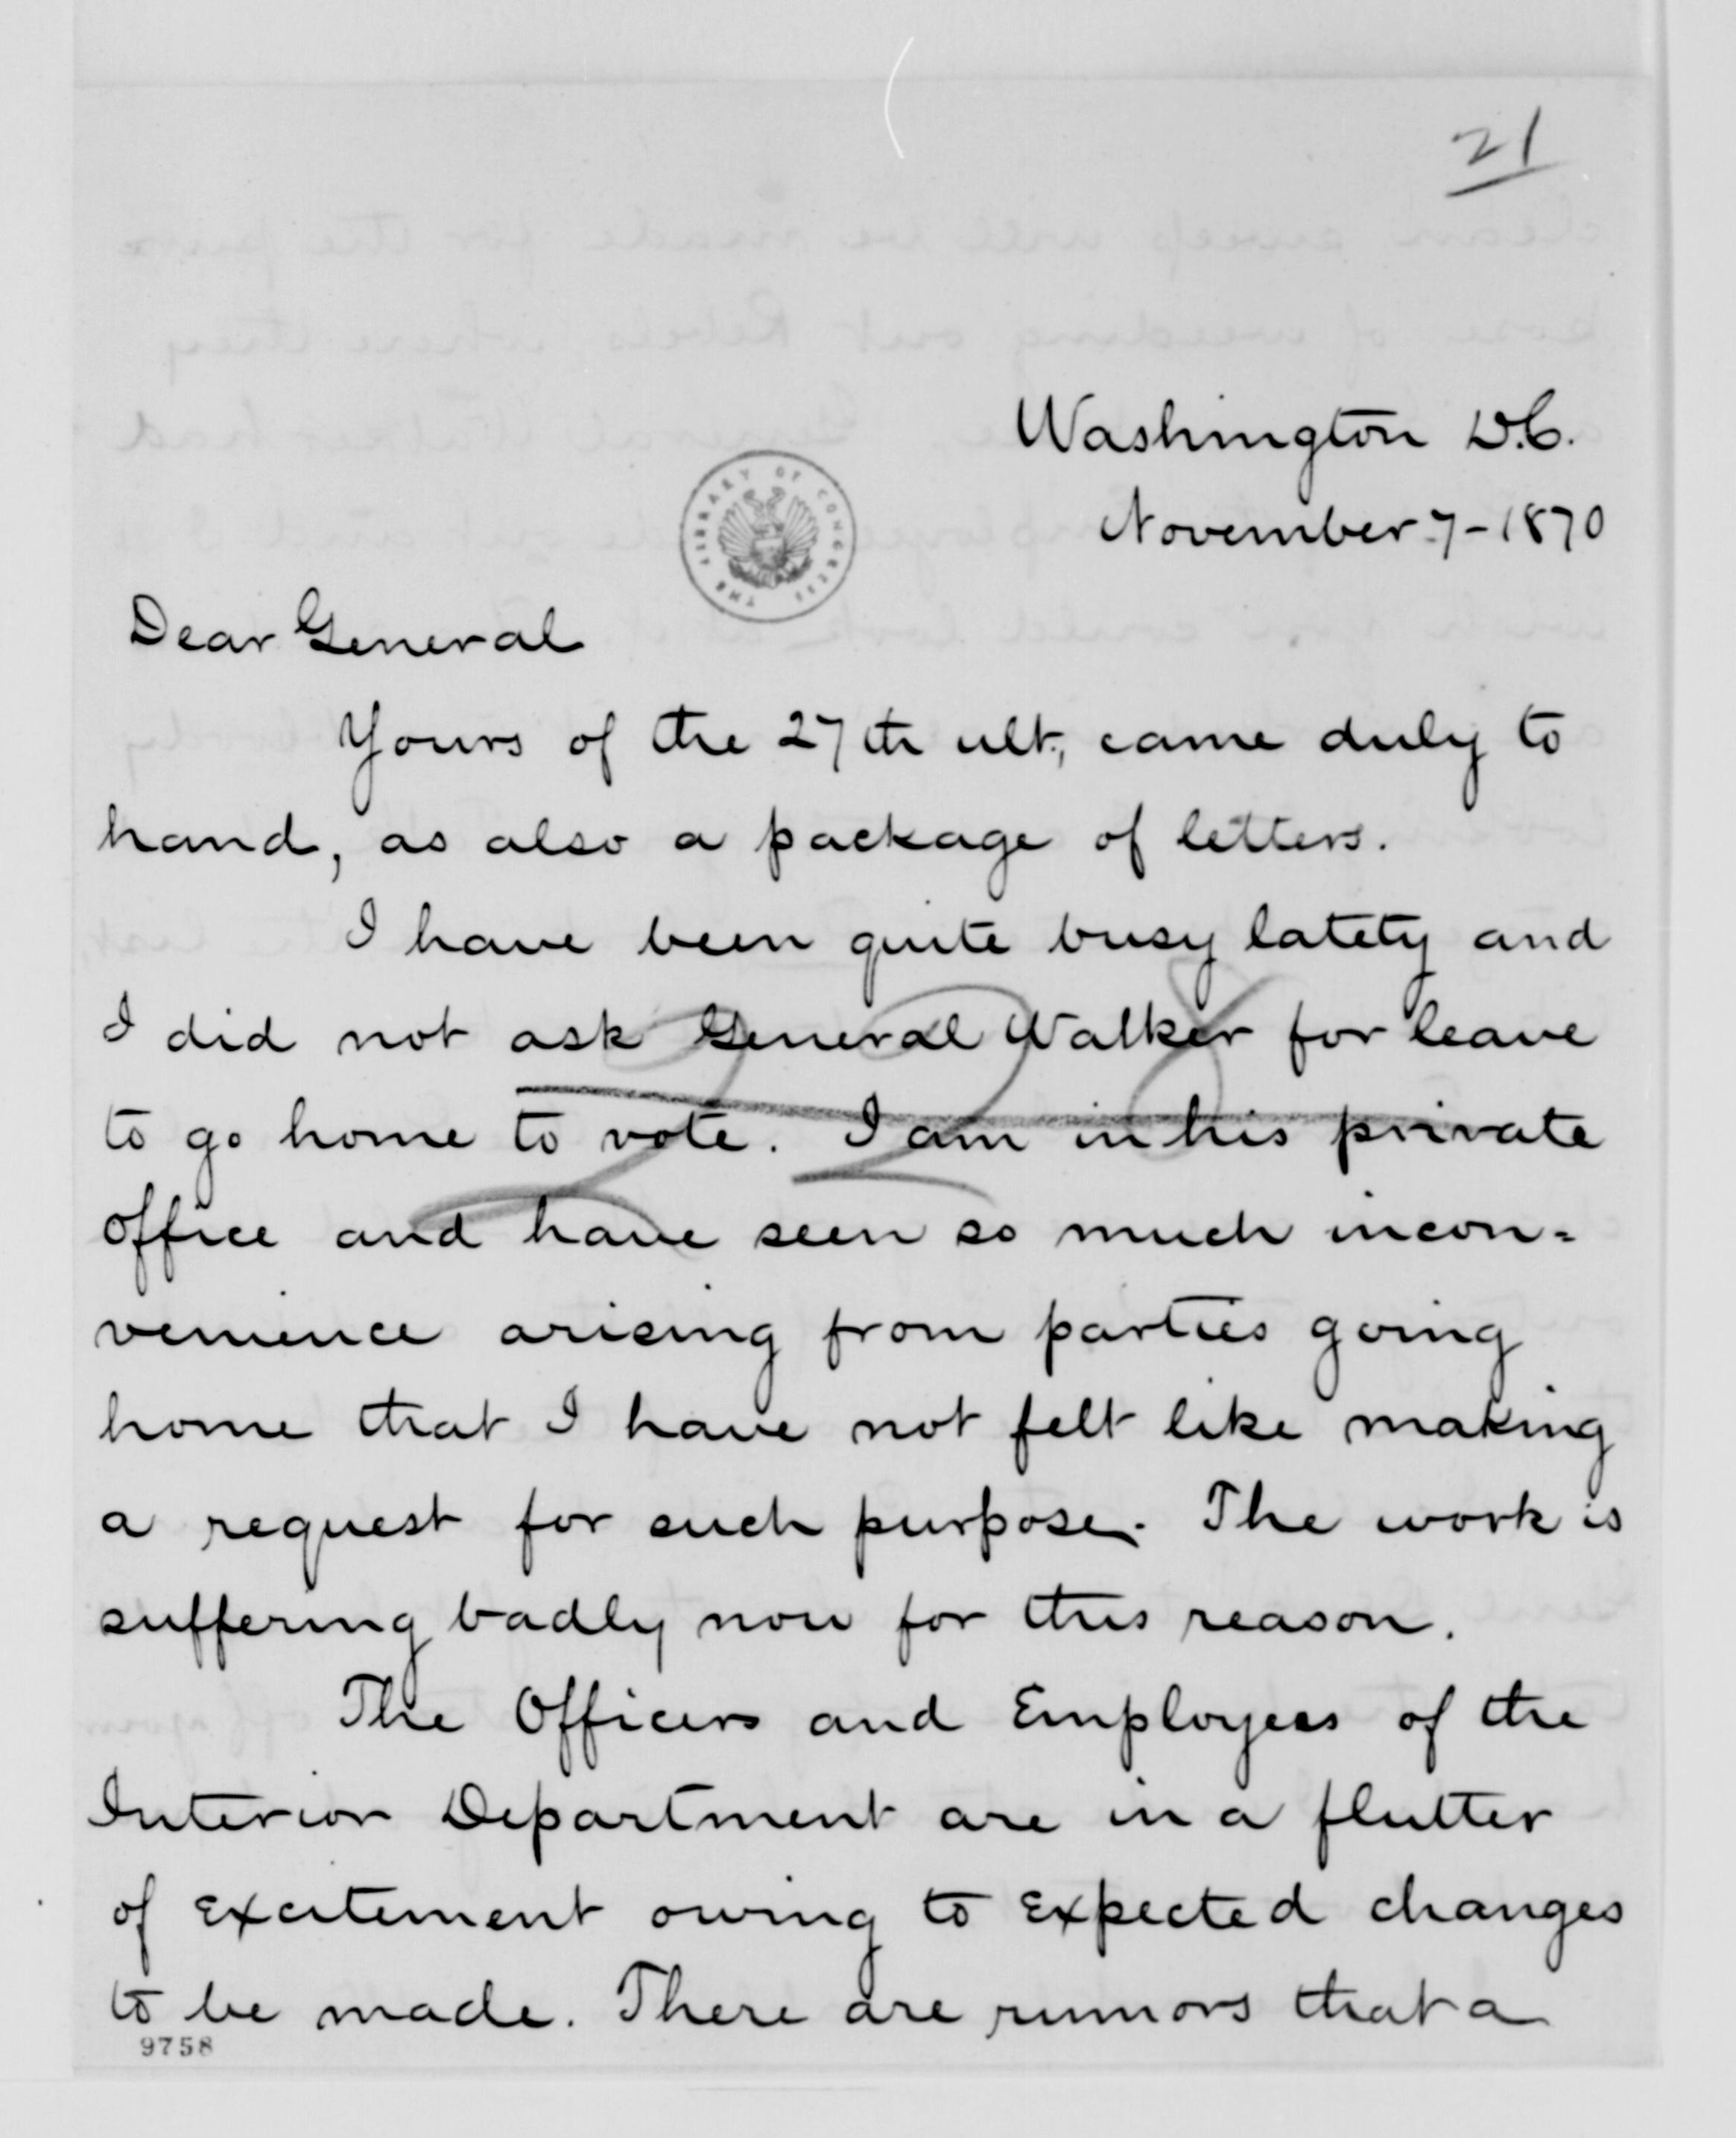 21
Washington D.C.
November 7-1870
THE LIBRARY OF CONGRESS
Dear General
Yours of the 27th ult., came duly to
hand, as also a package of letters.
I have been quite busy lately and
I did not ask General Walker for leave
to go home to vote. I am in his private
office and have seen so much incon=
venience arising from parties going
home that I have not felt like making
a request for such purpose. The work is
suffering badly now for this reason.
The Officers and Employees of the
Interior Department are in a flutter
of excitement owing to expected changes
to be made. There are rumors that a
9758